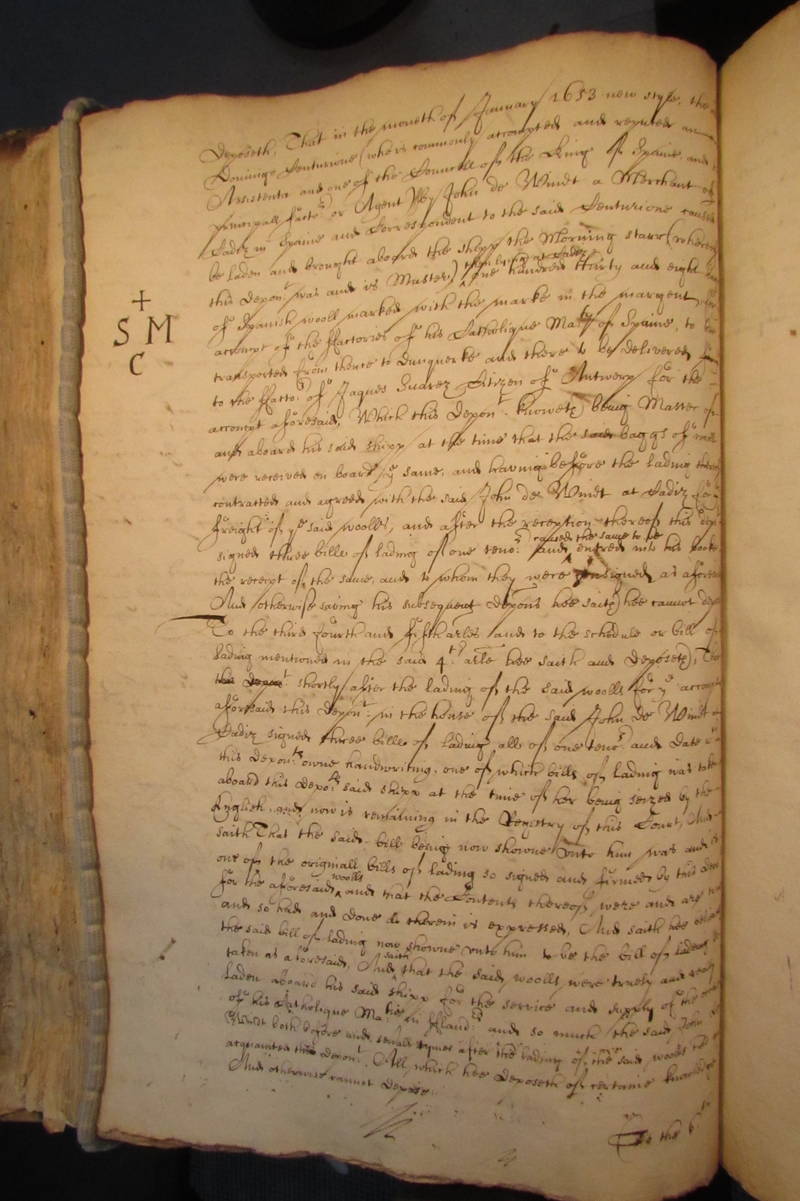 Deposeth, That in the moneth of January 1653 new style, the
Domingo Centurione (who is commonly accompted and reputed an
Assistente and one of the Councell of the King of Spaine and
principall Factor or Agent) By John de Windt a Merchant of
Cadiz in Spaine and Correspondent to the said Centurione caused
be laden and brought aboard the shipp the Morning starre (whereof
this Deponent was and is Master) then lying at Cadiz one hundred thirty and eight
of Spanish wooll marked with the marke in the margent, for
+
S M
C
accompt of the Factories of his Catholique Maty of Spaine, to be
transported from thence to Dunquerke and there to be delivered
to the Factor of Jaques Suarez Citizen of Antwerp for the
accompt aforesaid, Which this Deponent knoweth being Master of
and aboard his said shipp at the time that the said baggs of wooll
were received on board ye same, and having before the lading thereof
contracted and agreed with the said John de Windt at Cadiz for
freight of ye said woolls, and after the reception thereof this depot
signed three bills of lading of one tenor and caused the same to be entred into his booke
the receipt of the same, and to whom they were consigned, as aforesaid
And otherwise saving his subsequent deposns hee saith hee cannot depose
To the third fourth and fifth arles and to the schedule or bill of
lading mentioned in the said 4th arle hee saith and Deposeth, That
this Depont shortly after the lading of the said woolls for ye accompt
aforesaid this Depont in the house of the said John de Windt
Cadiz signed three bills of lading all of one tenor and date
this Deponts owne handwriting, one of which bills of lading was taken
aboard this Deponts said shipp at the time of her being seized by the
English, and now is remaining in the Registry of this Court, And
saith That the said bill being now showne unto him was and is
one of the originall bills of lading so signed and firmed by this depont
for the aforesaid woolls and that the Contents thereof were and are
and so had and done as therein is expressed, And saith hee
the said bill of lading now showne unto him to be the bill of lading
taken as aforesaid, And saith that the said woolls were truely and really
laden aboard his said shipp for the service and supply of the
of his Catholique Matie in Flandrs and so much the said John de
Windt both before and severall tymes after the lading of the said woolls
acquainted this Depont. All which hee Deposeth of certaine knowledge
And otherwise cannot Depose.
To the 6th